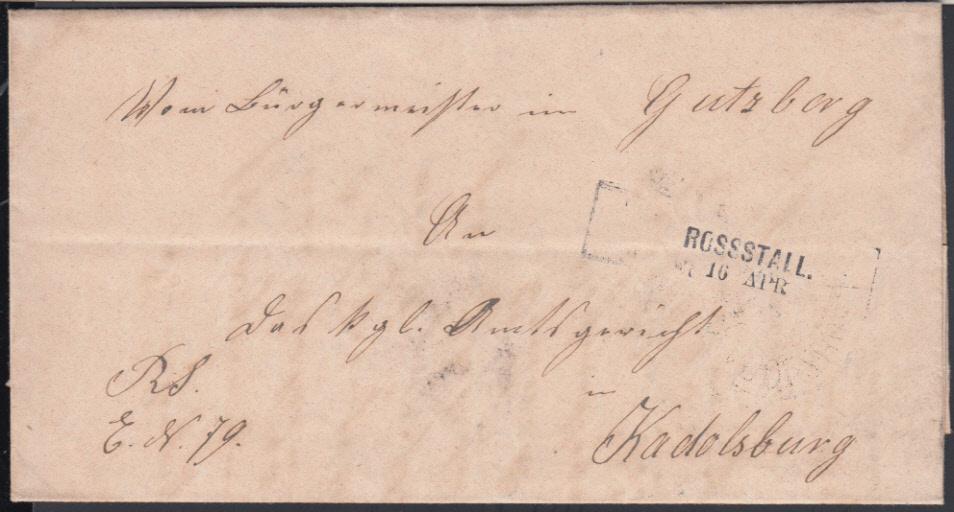 Vom Bürgermeister in Gutzberg
An
ROSSSTALL.
16 APR
das kgl. Amtsgericht
R.S.
in
E. N. 79.
Kadolsburg